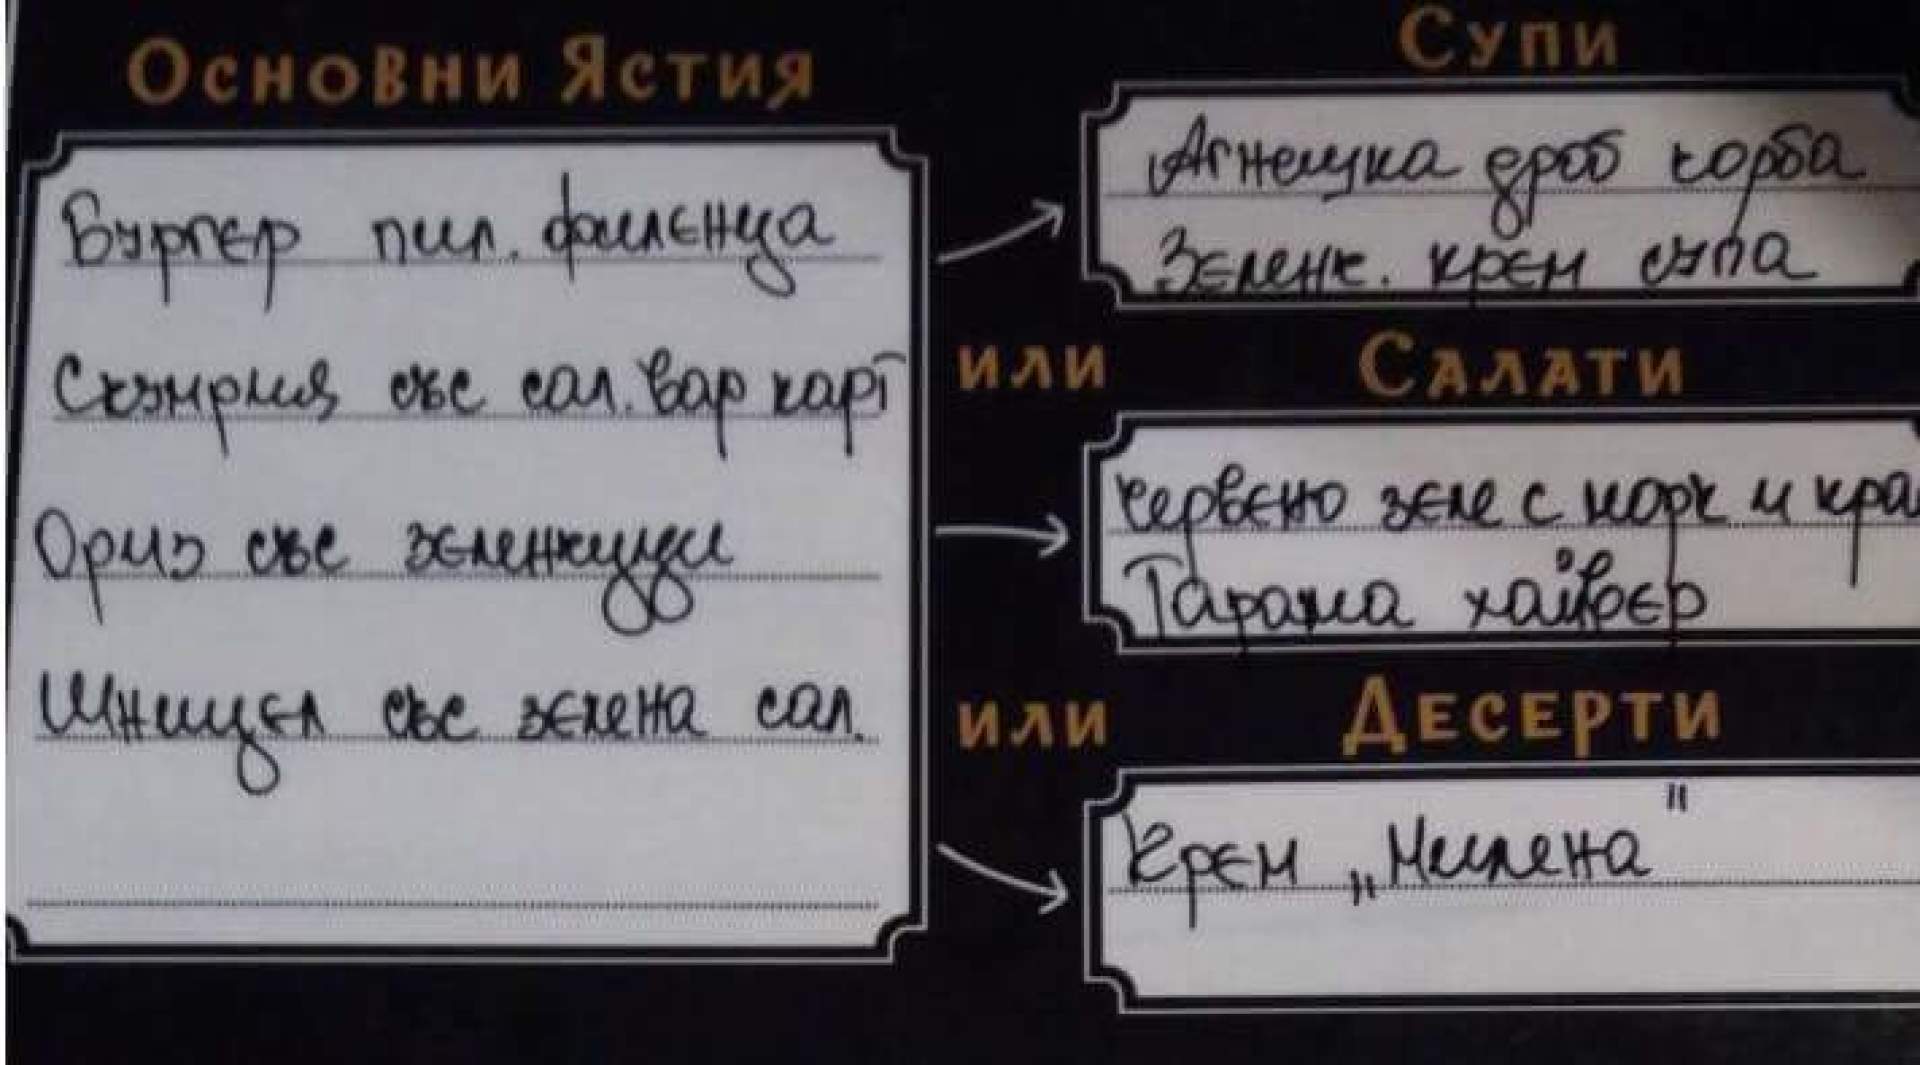 Основни Ястия
Бургер пил. филенца
Скумрия със сал. вар карт
Ориз със зеленчуци
Шницел със зелена сал.
Супи
Агнешка дроб чорба
Зеленч. крем супа
или
Салати
червено зеле с морк и кра
Тарама хайвер
или
Десерти
Крем „Милена"